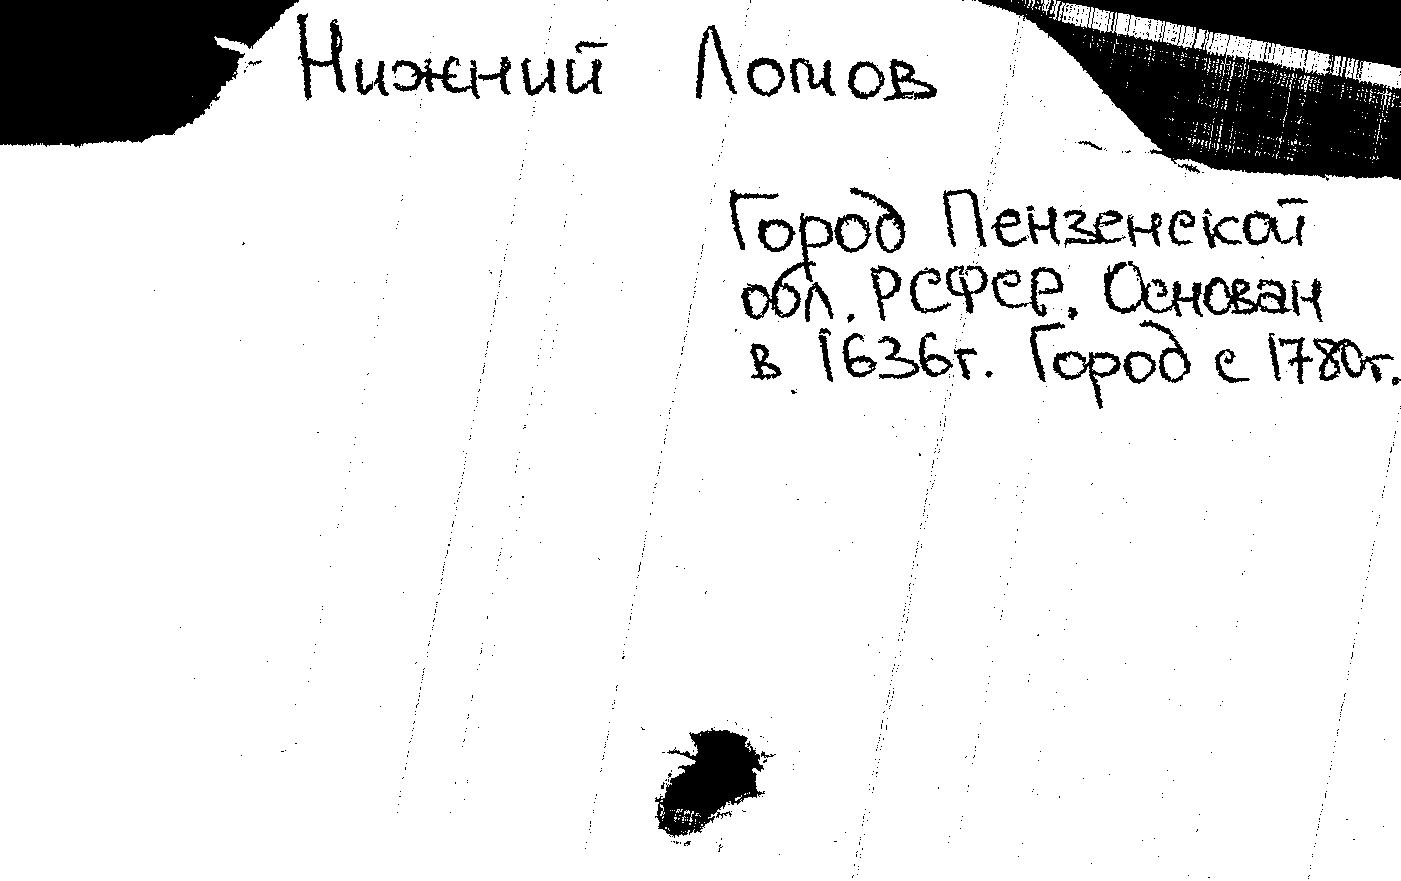 Нижний Ломов
Город Пензенской
обл. РСФСР. Основан
в 1636г. Город с 1780г.